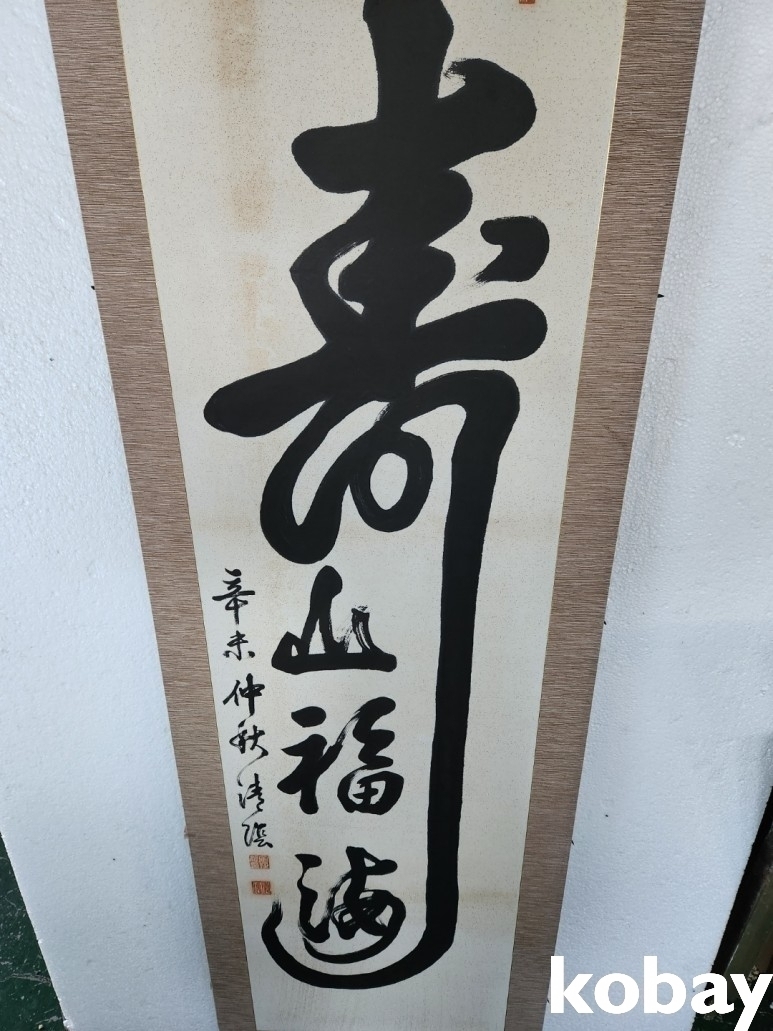 壽山福海
辛未仲秋清陰
kobay